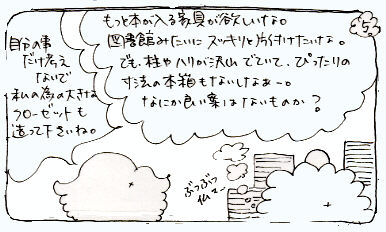 もっと本が入る家具が欲しいナよ。
図書館みたいに スッキリと片付けたいナよ。
でも、柱やハリが沢山 でていて、ぴったりの
寸法の本箱もないしなぁー。
なにか良い案はないものか?
自分の事
だけ考え
ないで
私の為の大きな
クローゼットも
造って下さいね。
ぶつぶつ